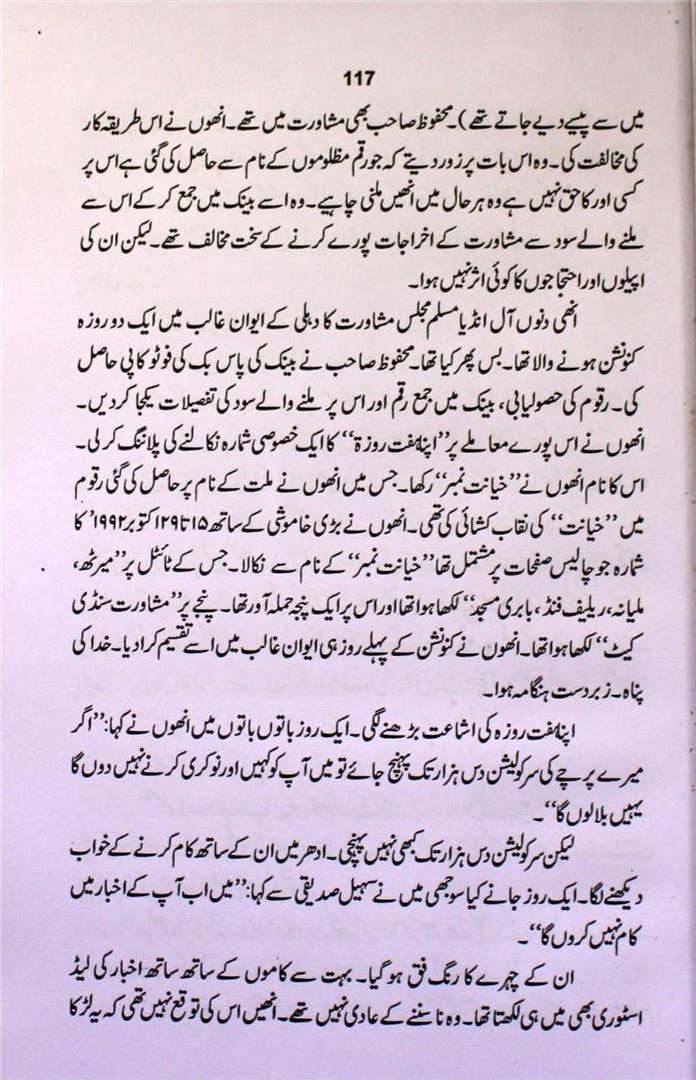 117
میں سے پیسے دیے جاتے تھے)۔ محفوظ صاحب بھی مشاورت میں تھے۔ انھوں نے اس طریقہ کار
کی مخالفت کی۔ وہ اس بات پر زور دیتے کہ جو رقم مظلوموں کے نام سے حاصل کی گئی ہے اس پر
کسی اور کا حق نہیں ہے وہ ہر حال میں انھیں ملنی چاہیے۔ وہ اسے بینک میں جمع کر کے اس سے
ملنے والے سود سے مشاورت کے اخراجات پورے کرنے کے سخت مخالف تھے۔ لیکن ان کی
اپیلوں اور احتجاجوں کا کوئی اثر نہیں ہوا۔
انھی دنوں آل انڈیا مسلم مجلس مشاورت کا دہلی کے ایوان غالب میں ایک دو روزہ
کنونشن ہونے والا تھا۔ بس پھر کیا تھا۔ محفوظ صاحب نے بینک کی پاس بک کی فوٹو کاپی حاصل
کی۔ رقوم کی حصولیابی، بینک میں جمع رقم اور اس پر ملنے والے سود کی تفصیلات یکجا کر دیں۔
انھوں نے اس پورے معاملے پر ’’اپنا ہفت روزۃ‘‘ کا ایک خصوصی شمارہ نکالنے کی پلاننگ کر لی۔
اس کا نام انھوں نے ’’خیانت نمبر‘‘ رکھا۔ جس میں انھوں نے ملت کے نام پر حاصل کی گئی رقوم
میں ’’خیانت‘‘ کی نقاب کشائی کی تھی۔ انھوں نے بڑی خاموشی کے ساتھ ۱۵ تا ۲۹ اکتوبر ۱۹۹۲ء کا
شمارہ جو چالیس صفحات پر مشتمل تھا ’’خیانت نمبر‘‘ کے نام سے نکالا۔ جس کے ٹائٹل پر ’’میرٹھ،
ملیانہ، ریلیف فنڈ، بابری مسجد‘‘ لکھا ہوا تھا اور اس پر ایک پنجہ حملہ آور تھا۔ پنجے پر ’’مشاورت سنڈی
کیٹ‘‘ لکھا ہوا تھا۔ انھوں نے کنونشن کے پہلے روز ہی ایوان غالب میں اسے تقسیم کرا دیا۔ خدا کی
پناہ۔ زبردست ہنگامہ ہوا۔
اپنا ہفت روزہ کی اشاعت بڑھنے لگی۔ ایک روز باتوں باتوں میں انھوں نے کہا: ’’اگر
میرے پرچے کی سرکولیشن دس ہزار تک پہنچ جائے تو میں آپ کو کہیں اور نوکری کرنے نہیں دوں گا
یہیں بلا لوں گا‘‘۔
لیکن سرکولیشن دس ہزار تک کبھی نہیں پہنچی۔ ادھر میں ان کے ساتھ کام کرنے کے خواب
دیکھنے لگا۔ ایک روز جانے کیا سوجھی میں نے سہیل صدیقی سے کہا: ’’میں اب آپ کے اخبار میں
کام نہیں کروں گا‘‘۔
ان کے چہرے کا رنگ فق ہو گیا۔ بہت سے کاموں کے ساتھ ساتھ اخبار کی لیڈ
اسٹوری بھی میں ہی لکھتا تھا۔ وہ نا سننے کے عادی نہیں تھے۔ انھیں اس کی توقع نہیں تھی کہ یہ لڑکا